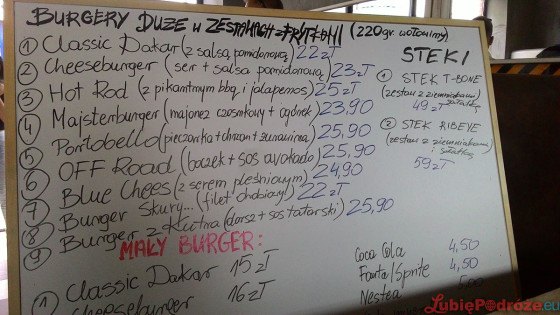 BURGERY DUŻE w ZESTAWACH z FRYTKAMI (220gr. wołowiny)
① Classic Dakar (z salsą pomidorową) 22 zł
② Cheeseburger (ser + salsa pomidorowa) 23 zł
③ Hot Rod (z pikantnym bbq i jalapenos) 25 zł
④ Majstenburger (majonez czosnkowy + ogórek) 23,90
⑤ Portobello (pieczarka + chrzan + żurawina) 25,90
⑥ OFF Road (boczek + sos avokado) 25,90
⑦ Blue Chees (z serem pleśniowym) 24,90
⑧ Burger Skury... (filet drobiowy) 22 zł
⑨ Burger z Kutna (dorsz + sos tatarski) 25,90
MAŁY BURGER:
① Classic Dakar 15 zł
Cheeseburger 16 zł
STEKI
① STEK T-BONE
(zestaw z ziemniakami i sałatką)
49 zł
② STEK RIBEYE
(zestaw z ziemniakami i sałatką)
59 zł
Coca Cola 4,50
Fanta/Sprite 4,50
Nestea 5,00
LubięP@dróże.eu